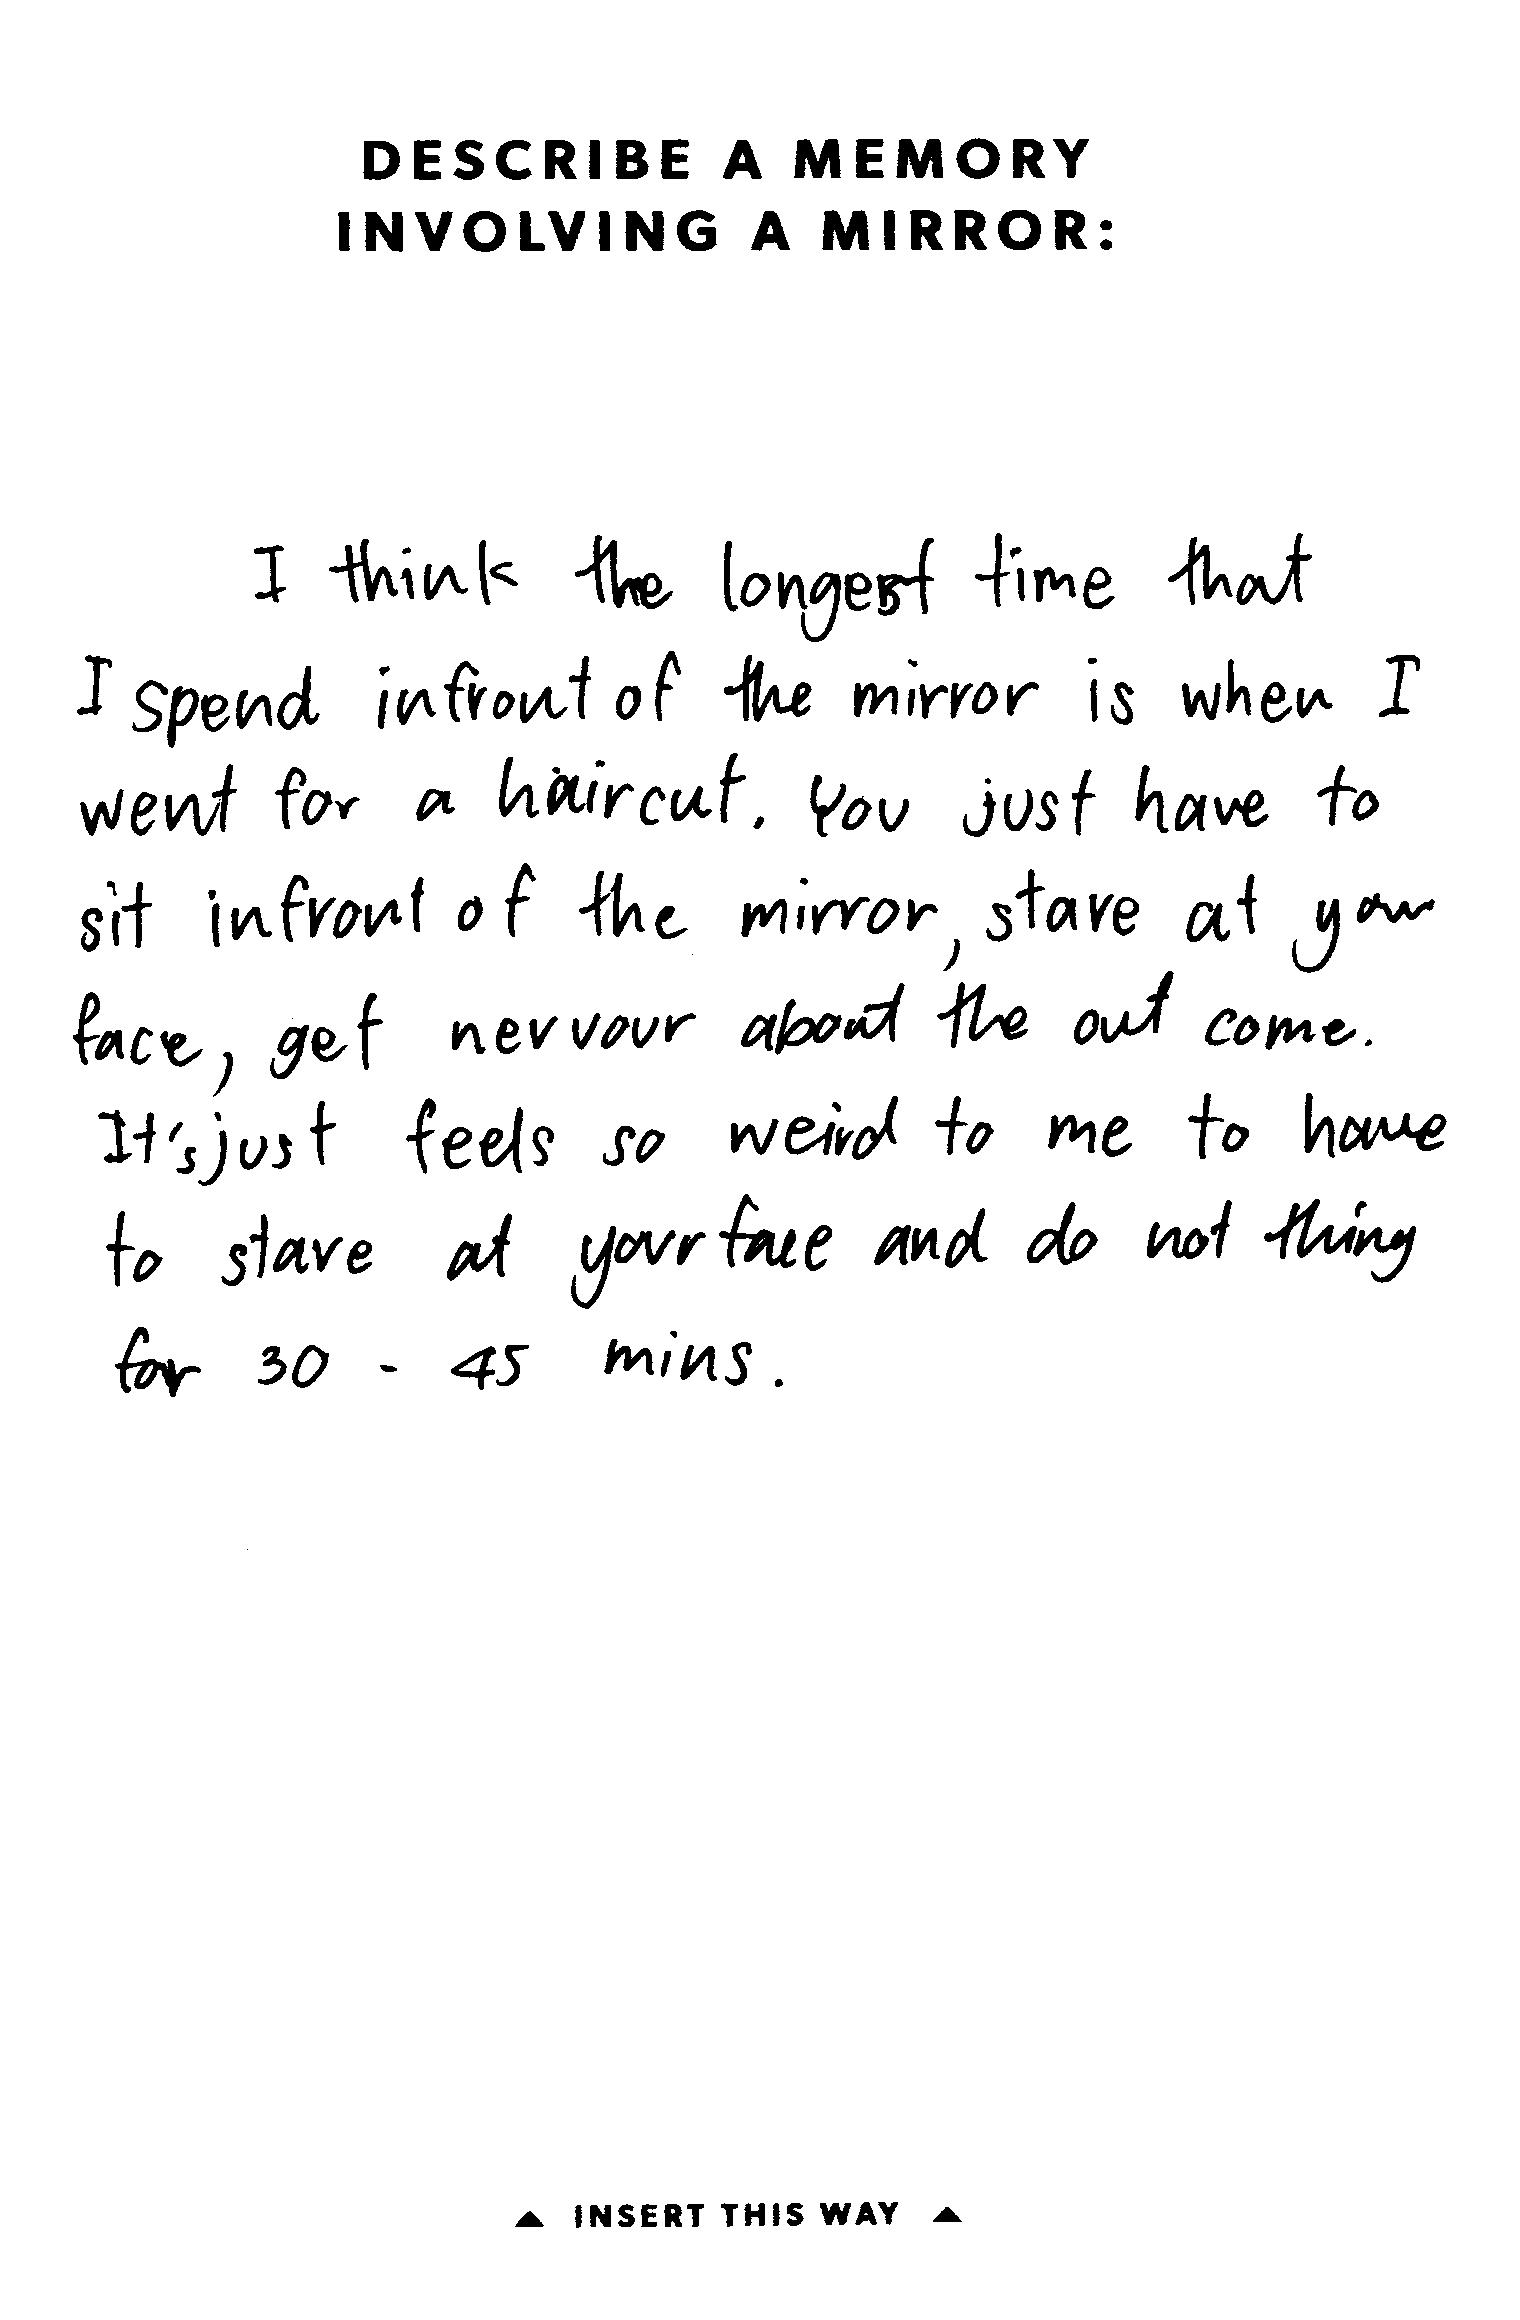 DESCRIBE A MEMORY
INVOLVING A MIRROR:
I think the longest time that
I spend infront of the mirror is when I
went for a haircut. You just have to
sit infront of the mirror, stare at your
face, get nervour about the out come.
It's just feels so weird to me to have
to stare at your face and do not thing
for 30 - 45 mins.
▲ INSERT THIS WAY ▲